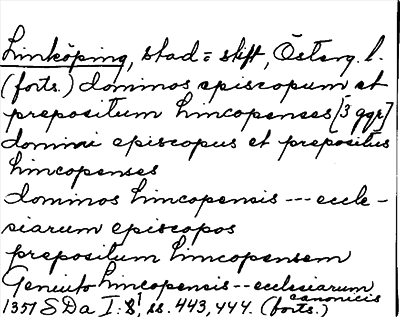 Linköping, stad = stift, Österg. l.
(forts.) dominos episcopum et
prepositum Lincopenses [3 ggr]
domini episcopus et prepositus
Lincopenses
dominos Lincopensis --- eccle-
siarum episcopos
prepositum Lincopensem
Geniuto Lincopensis -- ecclesiarum
canonicis
1351 SDa I:8¹, ss. 443, 444. (forts.)